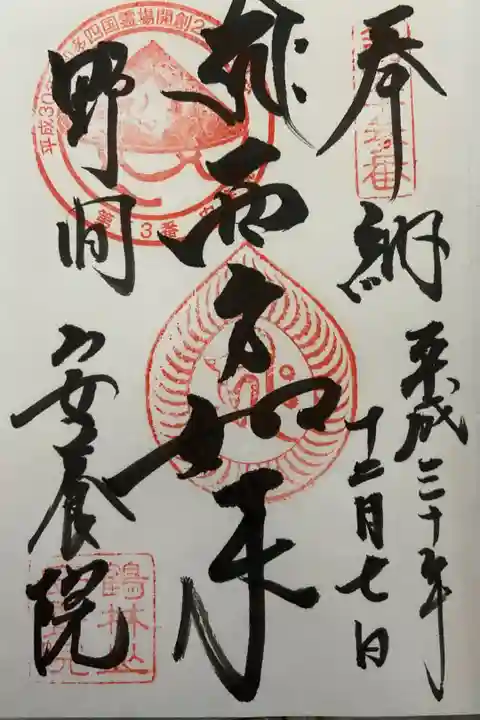 奉納
平成三十年
十二月七日
如来
野間
安養院
平成30
四国霊場開創2
第 3番
鶴林山